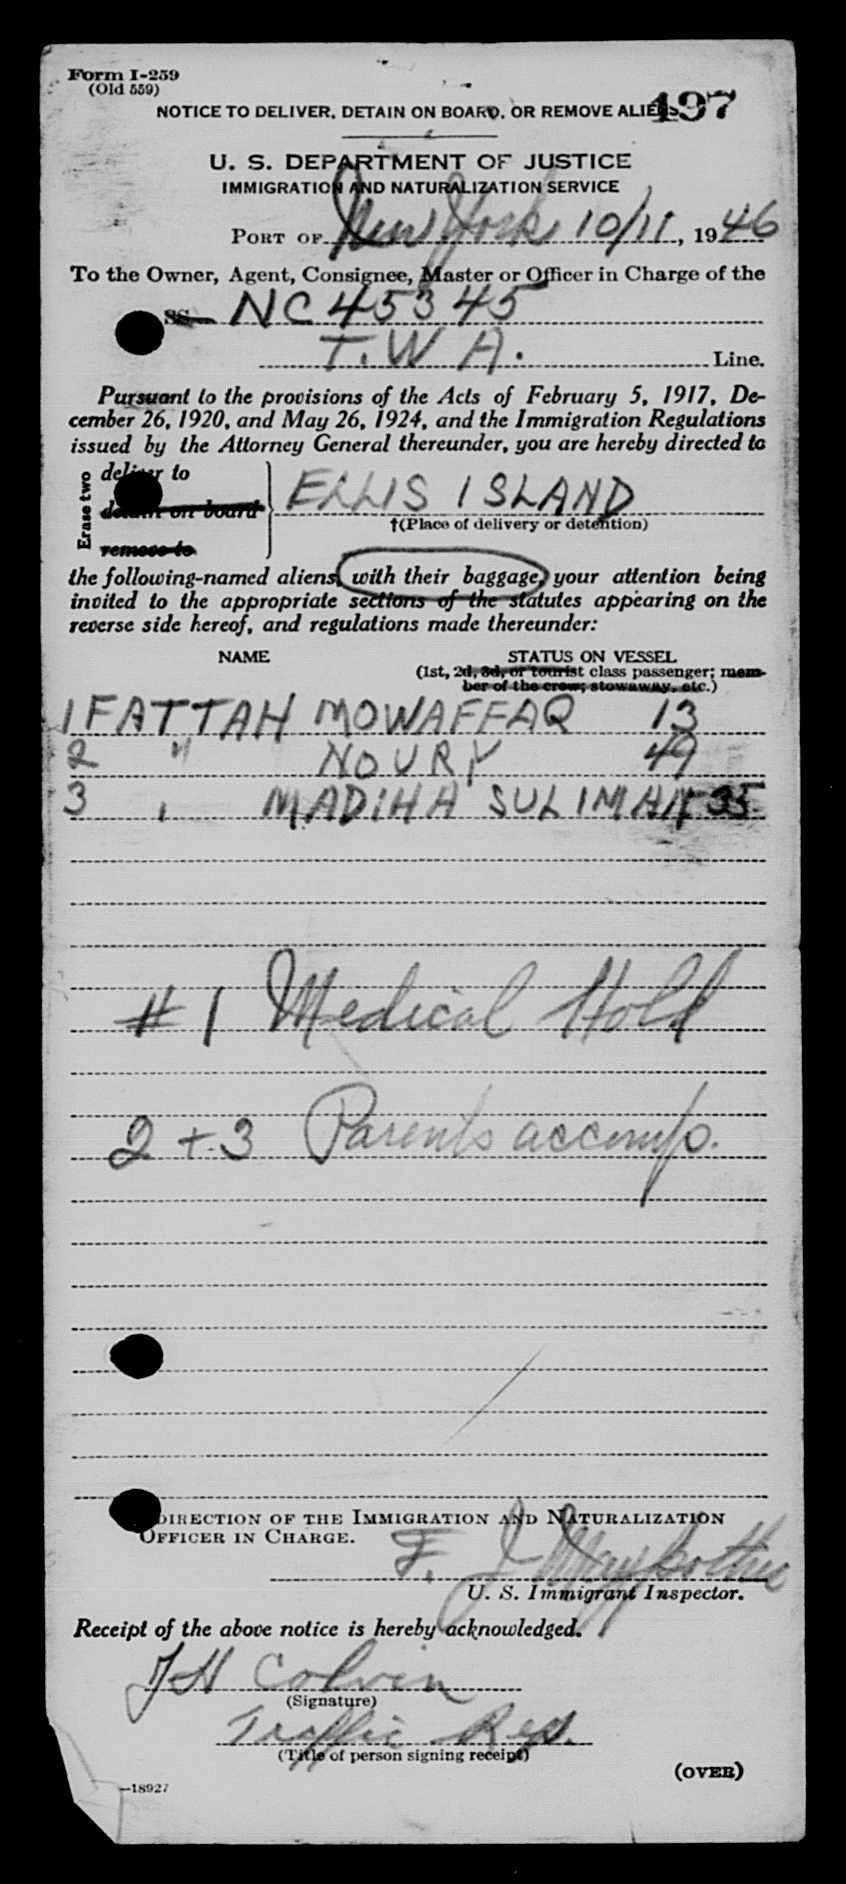 Form I-259
(Old 559)
497
NOTICE TO DELIVER, DETAIN ON BOARD, OR REMOVE ALIENS
U. S. DEPARTMENT OF JUSTICE
IMMIGRATION AND NATURALIZATION SERVICE
PORT OF New York 10/11, 1946
To the Owner, Agent, Consignee, Master or Officer in Charge of the
SS NC 45345
T. W A. Line.
Pursuant to the provisions of the Acts of February 5, 1917, De-
cember 26, 1920, and May 26, 1924, and the Immigration Regulations
issued by the Attorney General thereunder, you are hereby directed to
Erase two
deliver to
detain on board
remove to
ELLIS ISLAND
†(Place of delivery or detention)
the following-named aliens, with their baggage, your attention being
invited to the appropriate sections of the statutes appearing on the
reverse side hereof, and regulations made thereunder:
NAME STATUS ON VESSEL
(1st, 2d, 3d, or tourist class passenger; mem-
ber of the crew; stowaway, etc.)
1 FATTAH MOWAFFAQ 13
2 " NOURY 49
3 " MADIHA SULIMAN 35
# 1 Medical Hold
2 + 3 Parents accomp.
DIRECTION OF THE IMMIGRATION AND NATURALIZATION
OFFICER IN CHARGE.
F. J.
U. S. Immigrant Inspector.
Receipt of the above notice is hereby acknowledged.
J H Colvin
(Signature)
Traffic Rep.
(Title of person signing receipt)
(OVER)
—18927